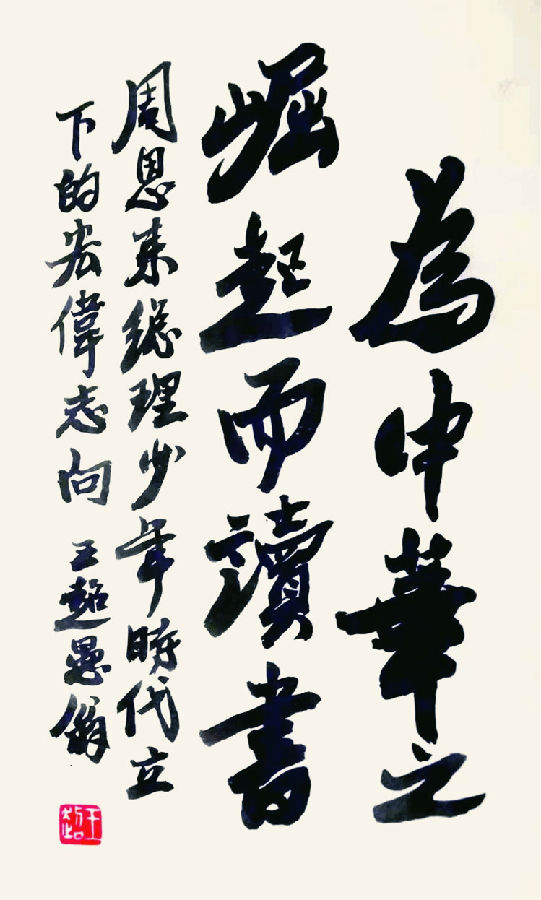 為中華之
崛起而讀書
周恩来總理少年時代立
下的宏偉志向 王超愚翁